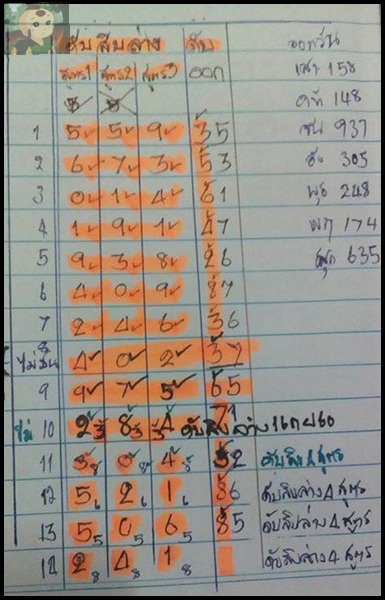 ดับสิบล่าง ดับ ออกวัน
สูตร1 สูตร2 สูตร3 ออก เสาร์ 158
อาทิ 148
1 5 5 9 35 937
2 6 7 3 53 อัง 305
3 0 1 4 61 พุธ 248
4 1 9 1 47 พฤ 174
5 9 3 8 26 ศุก 635
6 4 0 9 87
7 2 4 6 36
4 0 2 37
9 9 7 5 65
ไม่ 10 2 8 4 71 ดับสิบล่าง
11 3 8 0 8 4 8 52 ดับสิบ 4 สูตร
12 5 6 2 6 1 6 86 ดับสิบล่าง 4 สูตร
13 5 5 0 5 6 5 85 ดับสิบล่าง 4 สูตร
14 2 8 4 8 1 8 ดับสิบล่าง 4 สูตร